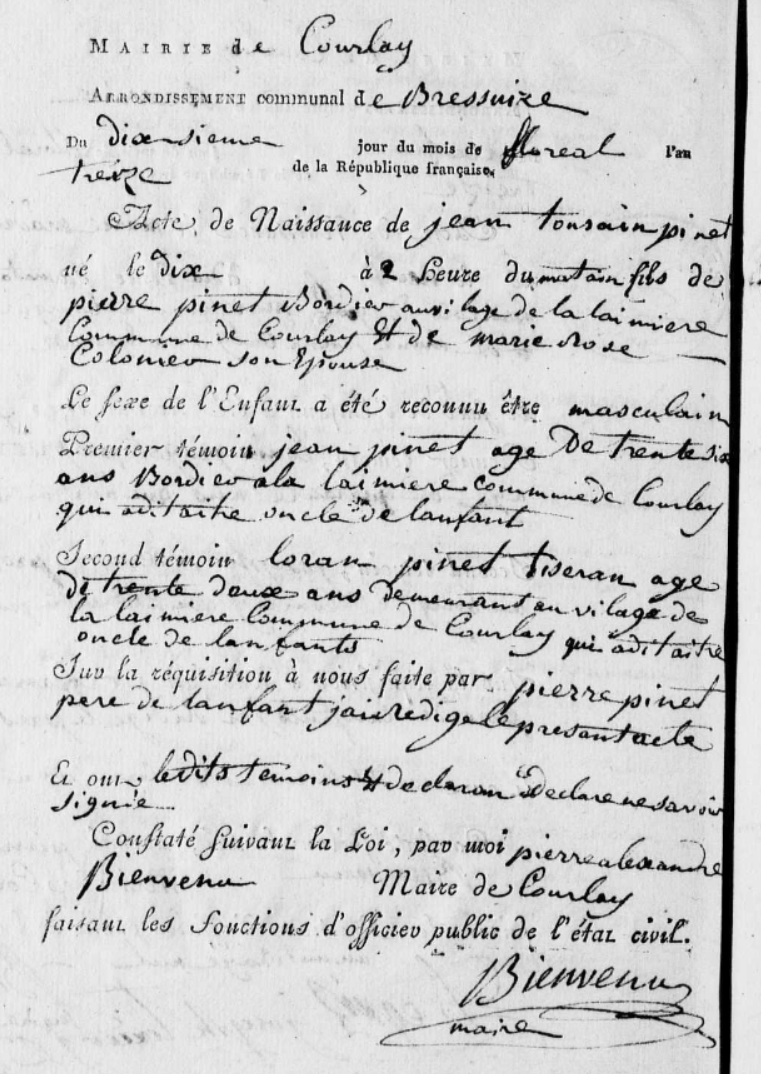 MAIRIE de Courlay
ARRONDISSEMENT communal de Bressuize
Du dixsieme jour du mois de floreal l'an
treize de la République française.
Acte de Naissance de jean tousain pinet
né le dix à 2 heure du matain fils de
pierre pinet Bordier au vilage de la laimiere
Commune de Courlay Et de marie Rose
Colonier son Epouse
Le sexe de l'Enfant a été reconnu être masculain
Premier témoin jean pinet age De trente six
ans Bordier a la laimiere commune de Courlay
qui a dit aitre oncle de lanfant
Second témoin loran pinet tiseran age
de trente deux ans demeurant au vilage de
la laimiere Commune de Courlay qui a dit aitre
oncle de lanfants
Sur la réquisition à nous faite par pierre pinet
pere de lanfant jai redige le presant acte
Et ont le dits temoins Et declaran declare ne savoir
signie
Constaté suivant la Loi, par moi pierre alexandre
Bienvenu Maire de Courlay
faisant les fonctions d'officier public de l'état civil.
Bienvenu
maire